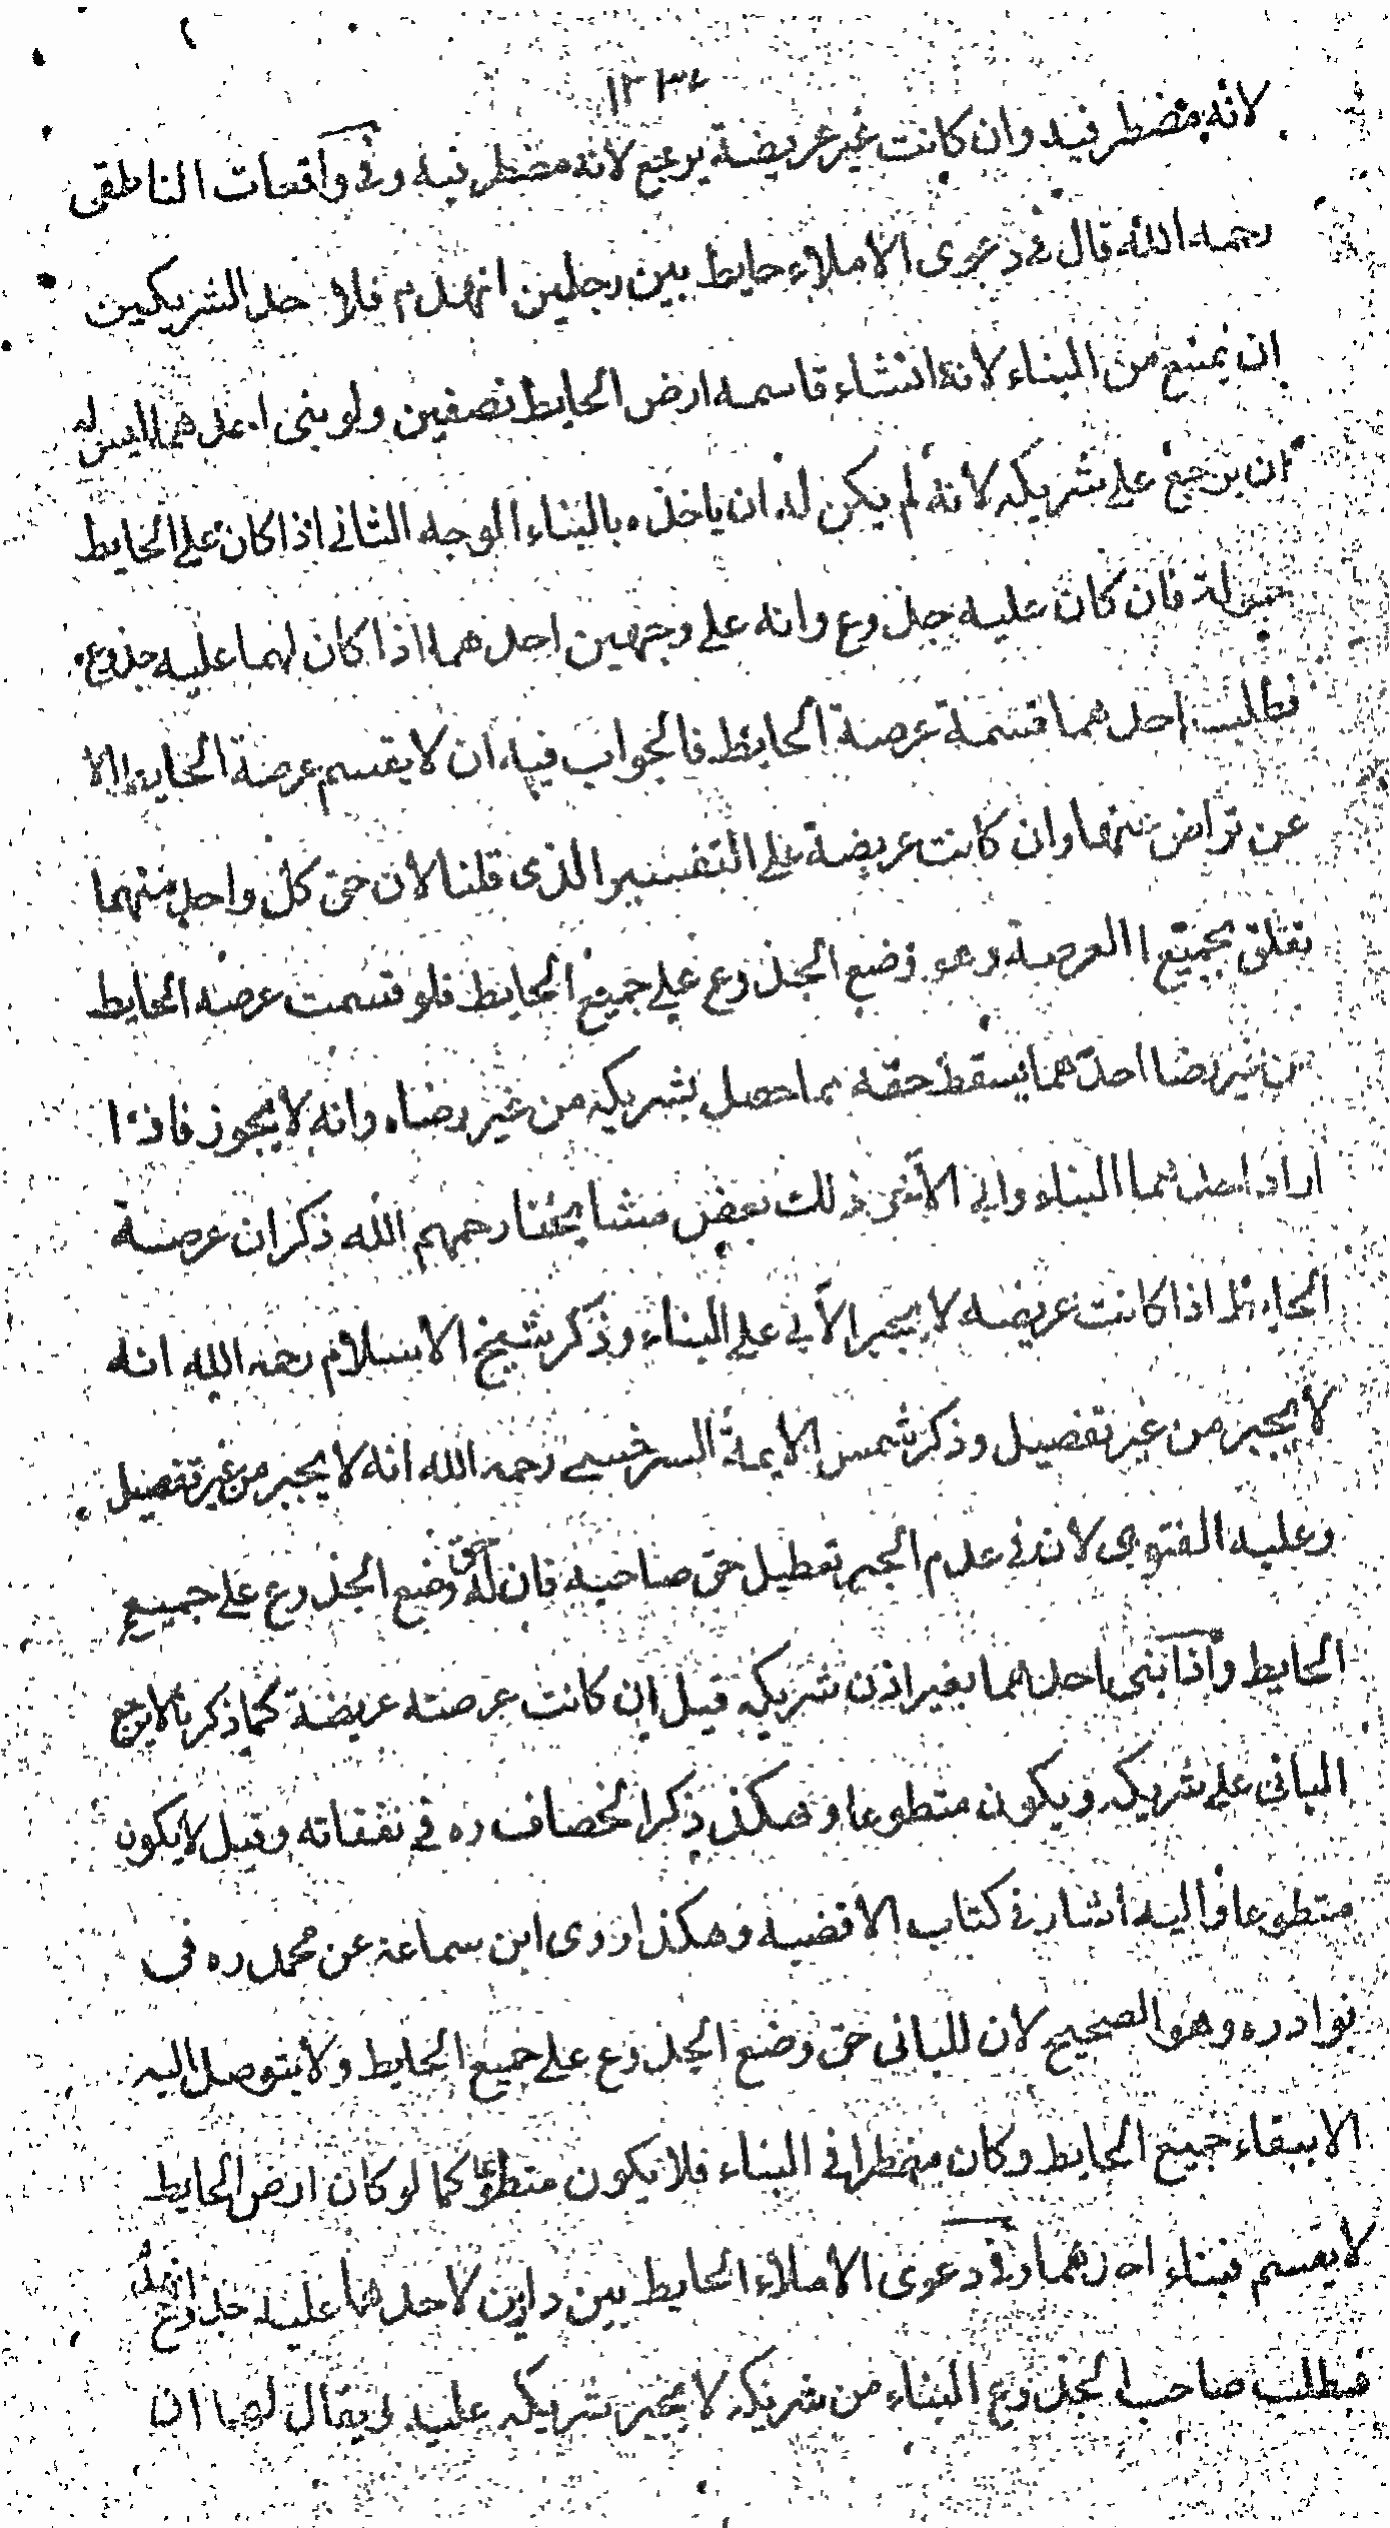 ١٢٣٤
لانه مضطر فيه وان كانت غير عريضة يرجع لانه مضطر فيه وفي واقعات الناطقى
رحمه الله قال في دعوى الاملاء حايط بين رجلين انهدم فلاحد الشريكين
ان يمتنع من البناء لانه انشاء قاسمه ارض الحايط نصفين ولو بنى احدهما ليس له
ان يرجع على شريكه لانه لم يكن له ان ياخذه بالبناء الوجه الثاني اذا كان على الحايط
حمولة فان كان عليه جذوع وانه على وجهين احدهما اذا كان لهما عليه جذوع
فطلب احدهما قسمة عرصة الحايط فالجواب فيه ان لا يقسم عرصة الحايط الا
عن تراض منهما وان كانت عريضة على التفسير الذى قلنا لان حق كل واحد منهما
تعلق بجميع العرصة وهو وضع الجذوع على جميع الحايط فلو قسمت عرصه الحايط
من غير رضا احدهما يسقط حقه مما حصل لشريكه من غير رضاه وانه لا يجوز فاذا
اراد احدهما البناء وابى الآخر ذلك بعض مشايخنا رحمهم الله ذكر ان عرصة
الحايط اذا كانت عريضه لا يجبر الآبي على البناء وذكر شيخ الاسلام رحمه الله انه
لا يجبر من غير تفصيل وذكر شمس الايمة السرخسي رحمه الله انه لا يجبر من غير تفصيل
وعليه الفتوى لان في عدم الجبر تعطيل حق صاحبه فان له حق وضع الجذوع على جميع
الحايط واذا بنى احدهما بغير اذن شريكه قيل ان كانت عرصته عريضة كما ذكرنا لا يرجع
البانى على شريكه ويكون متطوعا وهكذى ذكر الخصاف ره في نفقاته وقيل لا يكون
متطوعا واليه اشار في كتاب الاقضيه وهكذا روى ابن سماعة عن محمد ره في
نوادره وهو الصحيح لان للبانى حق وضع الجذوع على جميع الحايط ولا يتوصل اليه
الا ببقاء جميع الحايط وكان مضطرا في البناء فلا يكون متطوعا كما لو كان ارض الحايط
لا يقسم فبناء احدهما وفي دعوى الاملاء الحايط بين دارين لاحدهما عليه جذوع انهدم
فطلب صاحب الجذوع البناء من شريكه لا يجبر شريكه عليه ويقال لهما ان